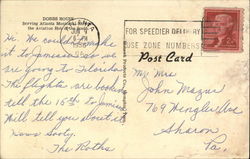 DOBBS HOUSE
Serving Atlanta Municipal Airport
FOR SPEEDIER DELIVERY
USE ZONE NUMBERS
Post Card
Hi. We couldn't make
it to Jamaica so we
are going to Florida.
The flights are booked
till the 15th to Jamaica
Will tell you about it
News Sooty.
The Roths
Mr. Mrs
John Mazur
769 Wengler Ave
Sharon
Pa.